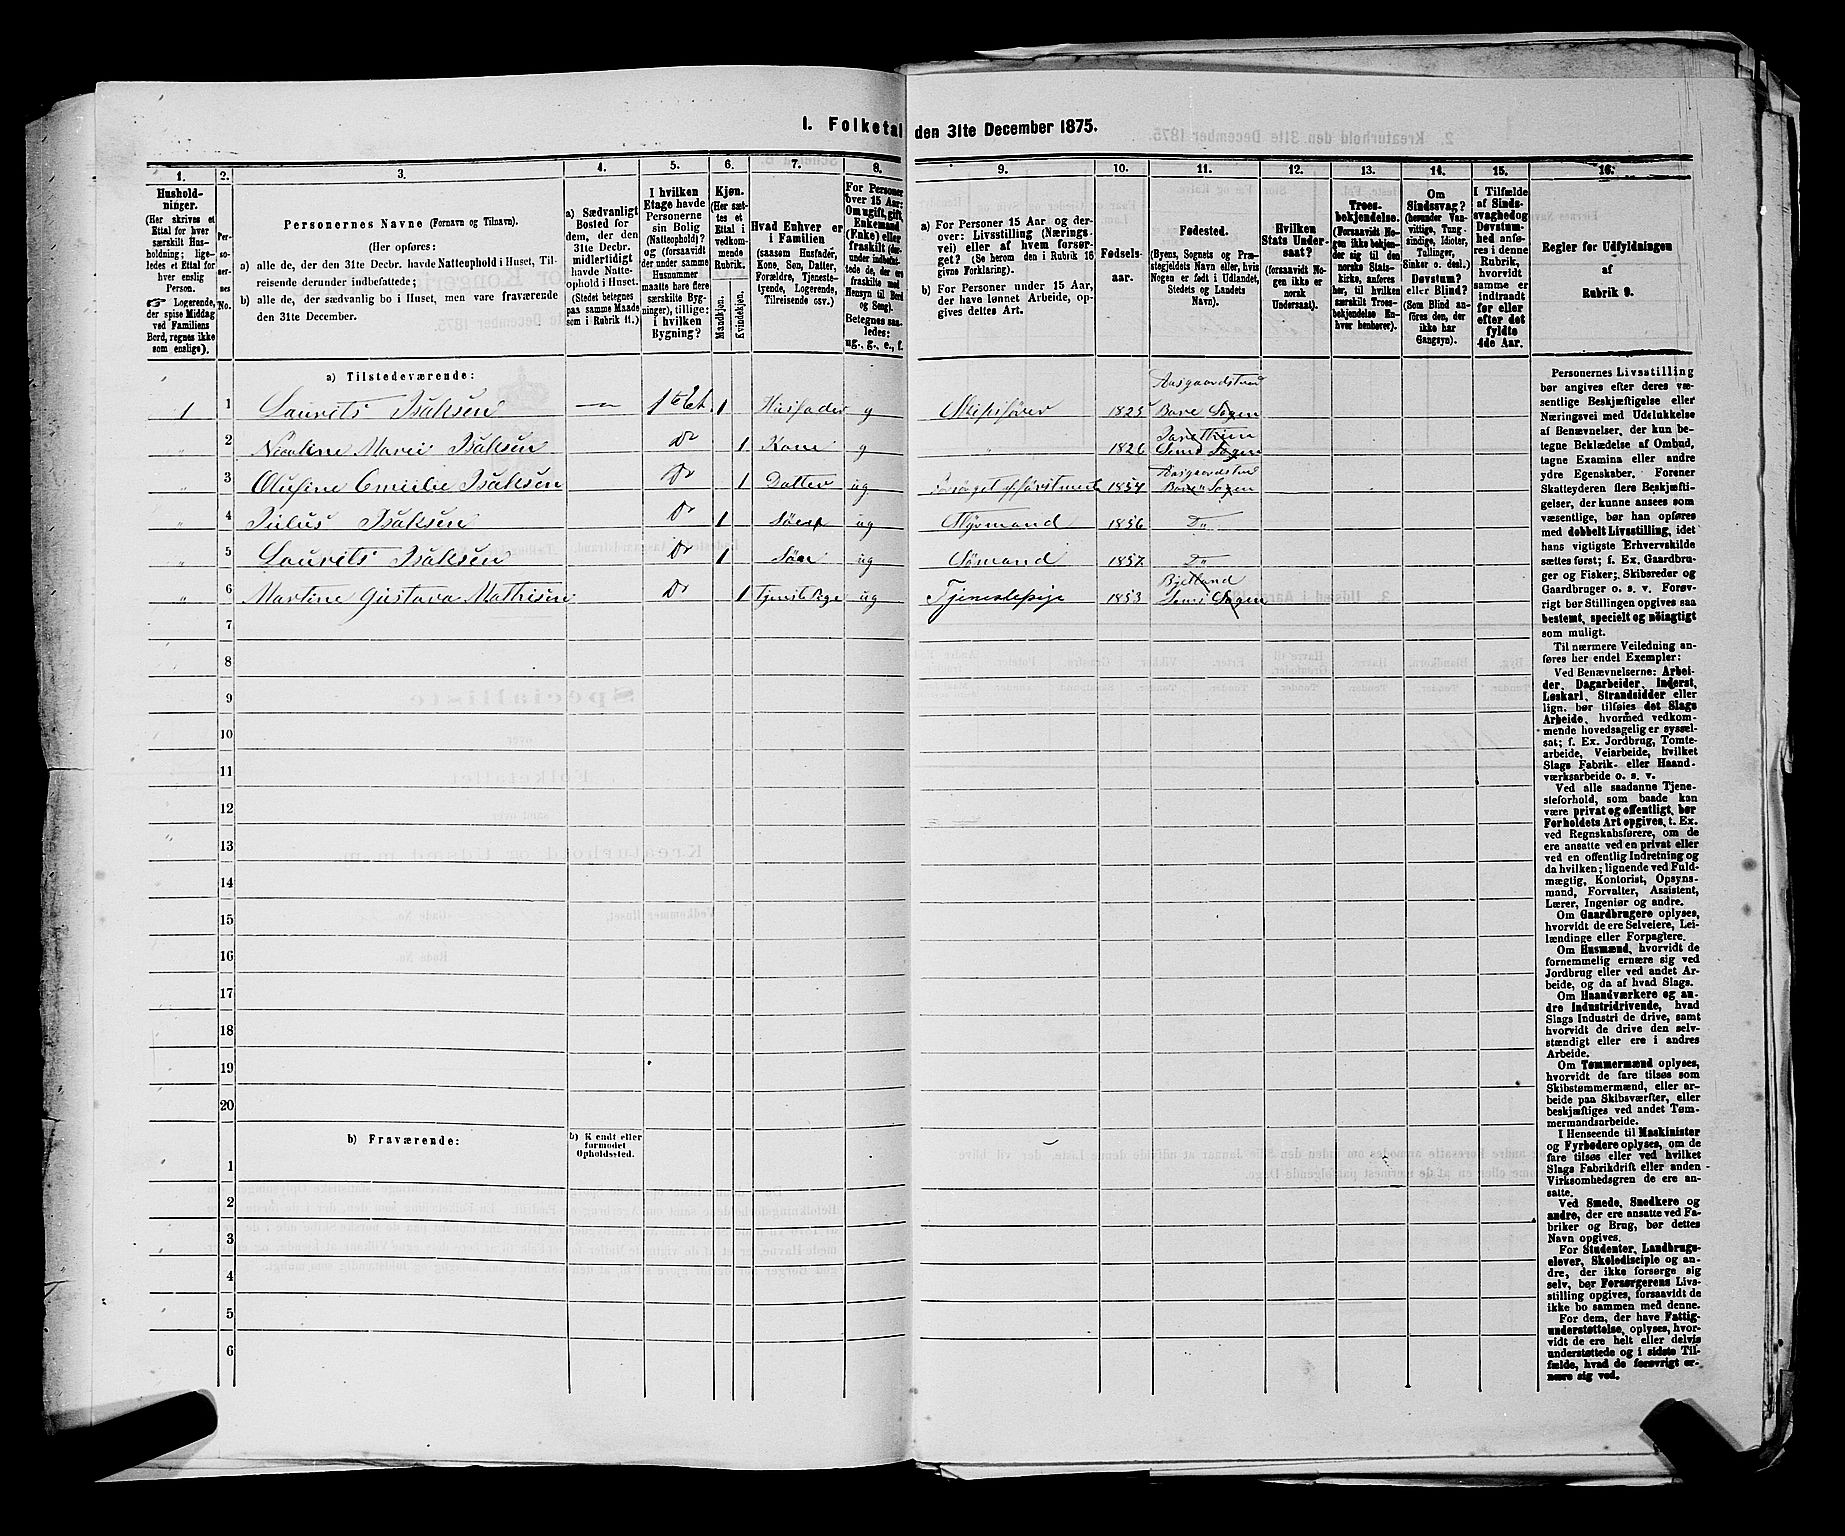 I. Folketal den 31te December 1875.
1. 2. 3. 4. 5. 6. 7. 8. 9. 10. 11. 12. 13. 14. 15. 16.
Hushold-
ninger.
(Her skrives et
Ettal for hver
særskilt Hus-
holdning; lige-
ledes et Ettal for
hver enslig
Person.
☞ Logerende,
der spise Middag
ved Familiens
Bord, regnes ikke
som enslige).
Per-
so-
ner-
nes
No.
Personernes Navne (Fornavn og Tilnavn).
(Her opføres:
a) alle de, der den 31te Decbr. havde Natteophold i Huset, Til-
reisende derunder indbefattede;
b) alle de, der sædvanlig bo i Huset, men vare fraværende
den 31te December.
a) Sædvanligt
Bosted for
dem, der den
31te Decbr.
midlertidigt
havde Natte-
ophold i Huset.
(Stedet betegnes
paa samme Maade
som i Rubrik 11.)
I hvilken
Etage havde
Personerne
sin Bolig
(Natteophold)?
og (forsaavidt
der under samme
Husnummer
maatte høre flere
særskilte Byg-
ninger), tillige:
i hvilken
Bygning?
Kjøn.
(Her sæt-
tes et
Ettal i
vedkom-
mende
Rubrik.
Mandkjøn.
Kvindekjøn.
Hvad Enhver er
i Familien
(saasom Husfader,
Kone, Søn, Datter,
Forældre, Tjeneste-
tyende, Logerende,
Tilreisende osv.)
For Personer
over 15 Aar:
Om ugift, gift,
Enkemand
(Enke) eller
fraskilt (for-
under indbefat-
tede de, der ere
fraskilte med
Hensyn til Bord
og Seng).
Betegnes saa-
ledes:
ug., g., e., f.
a) For Personer 15 Aar og der-
over: Livsstilling (Nærings-
vei) eller af hvem forsør-
get? (Se herom den i Rubrik 16
givne Forklaring).
b) For Personer under 15 Aar,
der have lønnet Arbeide, op-
gives dettes Art.
Fødsels-
aar.
Fødested.
(Byens, Sognets og Præ-
stegjeldets Navn eller, hvis
Nogen er født i Udlandet,
Stedets og Landets
Navn).
Hvilken
Stats Under-
saat?
(forsaavidt No-
gen ikke er
norsk
Undersaat).
Troes-
bekjendelse.
(Forsaavidt No-
gen ikke bekjen-
der sig til den
norske Stats-
kirke, anføres
her, til hvilken
særskilt Troes-
bekjendelse En-
hver henhører).
Om
Sindssvag?
(herunder Van-
vittige, Tung-
sindige, Idioter,
Tullinger,
Sinker o. desl.)
Døvstum?
eller Blind?
(Som Blind an-
føres den, der
ikke har
Gangsyn).
I Tilfælde
af Sinds-
svaghed og
Døvstum-
hed anfø-
res i denne
Rubrik,
hvorvidt
samme er
indtraadt
før eller
efter det
fyldte
4de Aar.
Regler for Udfyldningen
af
Rubrik 9.
a) Tilstedeværende:
1 1 Laurits Isaksen — 1ste Et 1 Husfader g Skibsfører 1825 Aasgaardstrand Borre Sogn
" 2 Nicoline Marie Isaksen Do 1 Kone g " 1826 Sems Sogn
" 3 Olufine Emilie Isaksen Do 1 Datter ug 1854 Aasgaardstrand Borre Sogn
" 4 Julius Isaksen Do 1 Søn ug Styrmand 1856 Do
" 5 Laurits Isaksen Do 1 Søn ug Sømand 1857 Do
" 6 Martine Gustava Mathisen Do 1 Tjenstepige ug Tjenestepige 1853 Sems Sogn
7
8
9
10
11
12
13
14
15
16
17
18
19
20
b) Fraværende:
b) Kjendt eller
formodet
Opholdssted.
1
2
3
4
5
6
Personernes Livsstilling
bør angives efter deres væ-
sentlige Beskjæftigelse eller
Næringsvei med Udelukkelse
af Benævnelser, der kun be-
tegne Beklædelse af Ombud,
tagne Examina eller andre
ydre Egenskaber. Forener
Skatteyderen flere Beskjæfti-
gelser, der kunne ansees som
væsentlige, bør han opføres
med dobbelt Livsstilling, idet
hans vigtigste Erhvervskilde
sættes først; f. Ex. Gaardbru-
ger og Fisker; Skibsreder og
Gaardbruger o. s. v. Forøv-
rigt bør Stillingen opgives saa
bestemt, specielt og nøiagtigt
som muligt.
Til nærmere Veiledning an-
føres her endel Exempler:
Ved Benævnelserne: Arbei-
der, Dagarbeider, Inderst,
Løskarl, Strandsidder eller
lign. bør tilføies det Slags
Arbeide, hvormed vedkom-
mende hovedsagelig er syssel-
sat; f. Ex. Jordbrug, Tomte-
arbeide, Veiarbeide, hvilket
Slags Fabrik- eller Haand-
værksarbeide o. s. v.
Ved alle saadanne Tjene-
steforhold, som baade kan
være privat og offentligt, bør
Forholdets Art opgives, t. Ex.
ved Regnskabsførere, om de
ere ansatte ved en privat eller
ved en offentlig Indretning og
da hvilken; lignende ved Fuld-
mægtig, Kontorist, Opsyns-
mand, Forvalter, Assistent,
Lærer, Ingeniør og andre.
Om Gaardbrugere oplyses,
hvorvidt de ere Selveiere, Lei-
lændinge eller Forpagtere.
Om Husmænd, hvorvidt de
fornemmelig ernære sig ved
Jordbrug eller ved andet Ar-
beide, og da af hvad Slags.
Om Haandværkere og an-
dre Industridrivende, hvad
Slags Industri de drive, samt
hvorvidt de drive den selv-
stændigt eller ere i andres
Arbeide.
Om Tømmermænd oplyses,
hvorvidt de fare tilsøs som
Skibstømmermænd, eller ar-
beide paa Skibsværfter, eller
beskjæftiges ved andet Tøm-
mermandsarbeide.
I Henseende til Maskinister
og Fyrbødere oplyses, om de
fare tilsøs eller ved hvilket
Slags Fabrikdrift eller anden
Virksomhedsgren de ere an-
satte.
Ved Smede, Snedkere og
andre, der ere ansatte ved Fa-
briker og Brug, bør dettes
Navn opgives.
For Studenter, Landbrugs-
elever, Skoledisciple og an-
dre, der ikke forsørge sig
selv, bør Forsørgerens Livs-
stilling opgives, forsaavidt de
ikke bo sammen med denne.
For dem, der have Fattig-
understøttelse, oplyses, hvor-
vidt de ere helt eller delvis
understøttede og i sidste Til-
fælde, hvad de forøvrigt er-
nære sig ved.